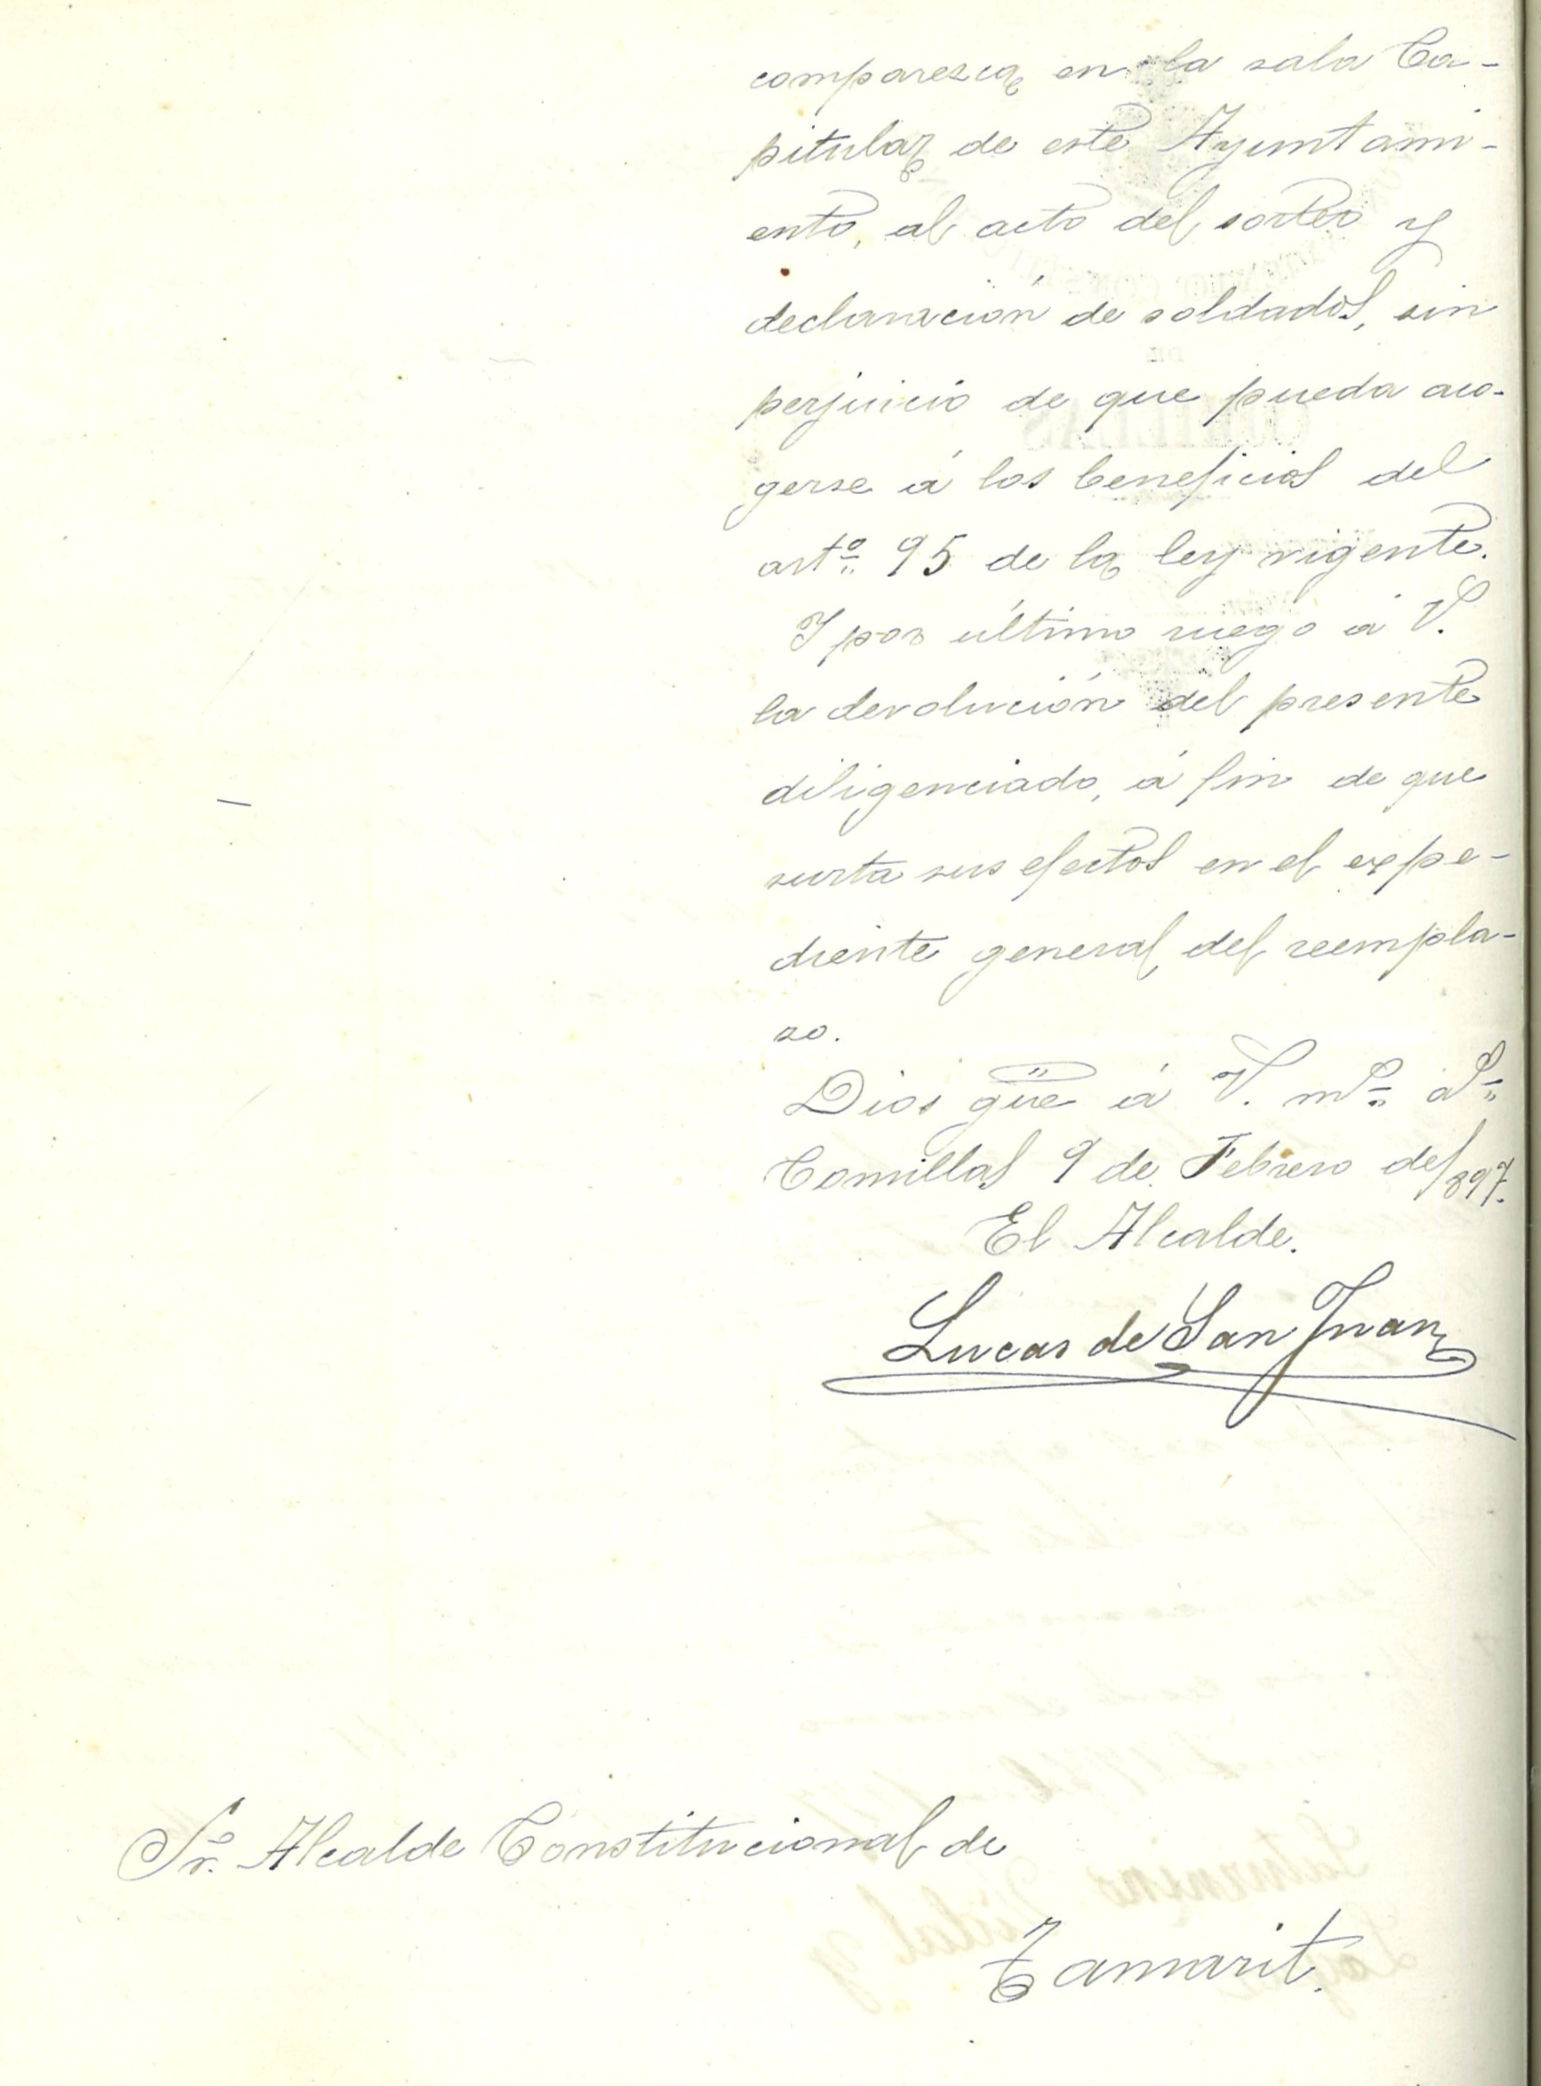 comparezca en la sala Ca-
pitular de este Ayuntami-
ento, al acto del sorteo y
declaración de soldados, sin
perjuicio de que pueda aco-
gerse á los beneficios del
artº 95 de la ley vigente.
Y por último ruego á V.
la devolución del presente
diligenciado, á fin de que
surta sus efectos en el expe-
diente general del reempla-
zo.
Dios güe á V. mS. aS.
Comillas 9 de Febrero de 1897.
El Alcalde.
Lucas de San Juan
Sr. Alcalde Constitucional de
Tamarit.